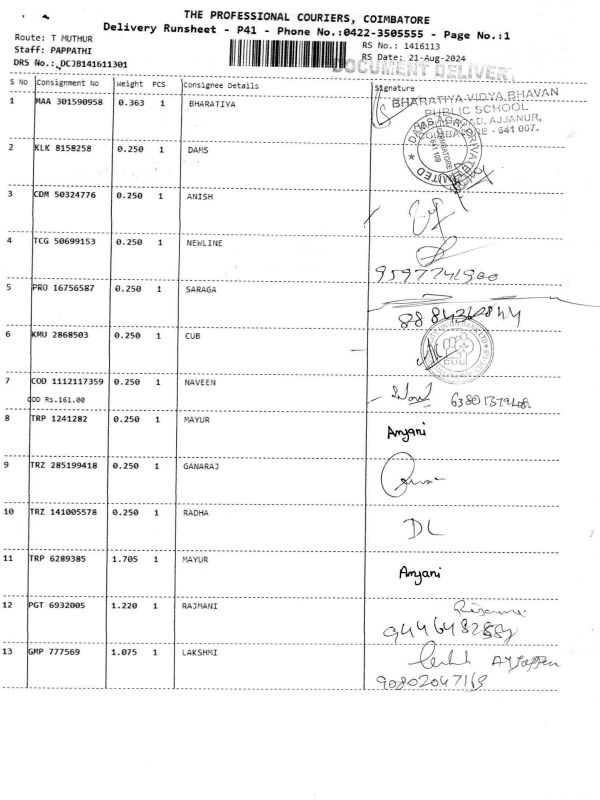 THE PROFESSIONAL COURIERS, COIMBATORE
Delivery Runsheet - P41 - Phone No.:0422-3505555 - Page No.:1
Route: T MUTHUR
Staff: PAPPATHI
DRS No.: DCJB141611301
RS No.: 1416113
RS Date: 21-Aug-2024
DOCUMENT DELIVERY
S No Consignment No Weight PCS Consignee Details Signature
1 MAA 301590958 0.363 1 BHARATIYA
BHARATIYA VIDYA BHAVAN
PUBLIC SCHOOL
AJJANUR,
COIMBATORE - 641 007.
2 KLK 8158258 0.250 1 DAMS
DAMS AGRO PRIVATE LIMITED
COIMBATORE
641 109
3 CDM 50324776 0.250 1 ANISH
4 TCG 50699153 0.250 1 NEWLINE
9597741900
5 PRO 16756587 0.250 1 SARAGA
6 KMU 2868503 0.250 1 CUB
CUB
7 COD 1112117359 0.250 1 NAVEEN
COD Rs.161.00
8 TRP 1241282 0.250 1 MAYUR Anjani
9 TRZ 285199418 0.250 1 GANARAJ
10 TRZ 141005578 0.250 1 RADHA DL
11 TRP 6289385 1.705 1 MAYUR Anjani
12 PGT 6932005 1.220 1 RAJMANI
13 GMP 777569 1.075 1 LAKSHMI
90802047169